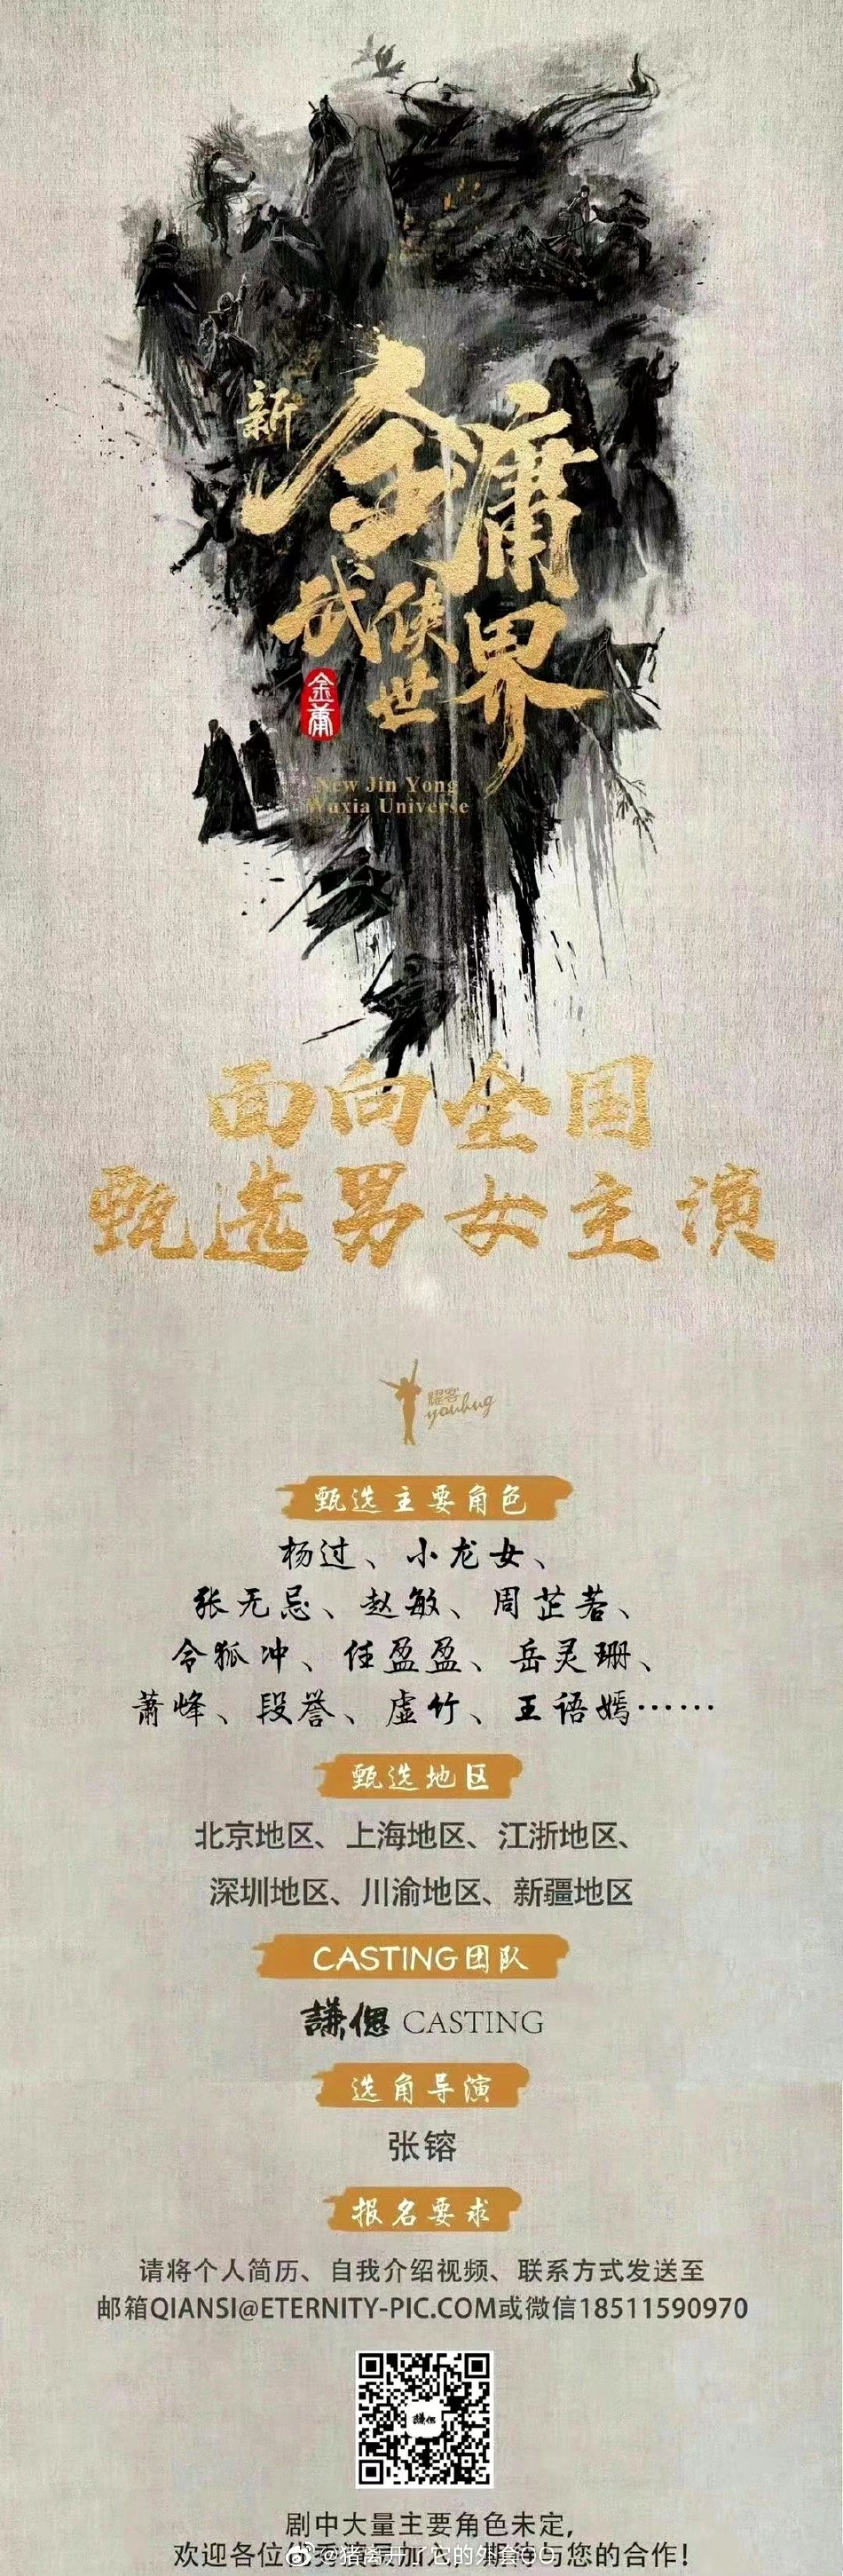 新
金庸
武侠
世界
金庸
New Jin Yong
Wuxia Universe
面向全国
甄选男女主演
耀客
youhug
甄选主要角色
杨过、小龙女、
张无忌、赵敏、周芷若、
令狐冲、任盈盈、岳灵珊、
萧峰、段誉、虚竹、王语嫣……
甄选地区
北京地区、上海地区、江浙地区、
深圳地区、川渝地区、新疆地区
CASTING团队
謙偲 CASTING
选角导演
张镕
报名要求
请将个人简历、自我介绍视频、联系方式发送至
邮箱QIANSI@ETERNITY-PIC.COM或微信18511590970
謙偲
剧中大量主要角色未定,
欢迎各位优秀演员加入,期待与您的合作!
@猪离开了它的外套GO